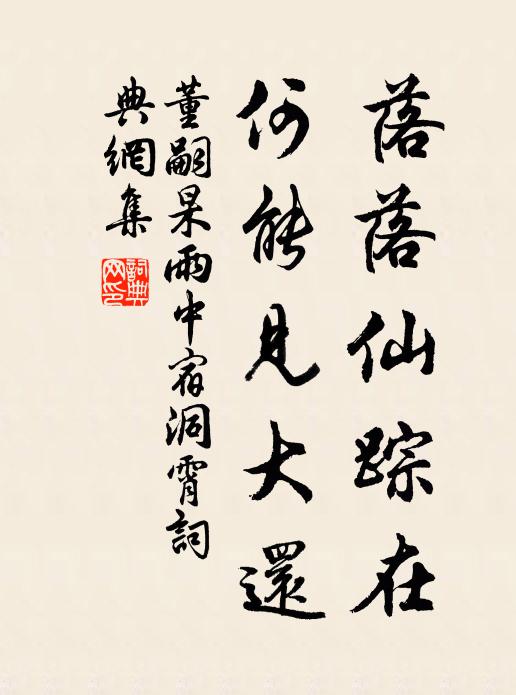 落落仙踪在
何能見大還
董嗣杲雨中宿洞霄詞
典網集
詞典網印